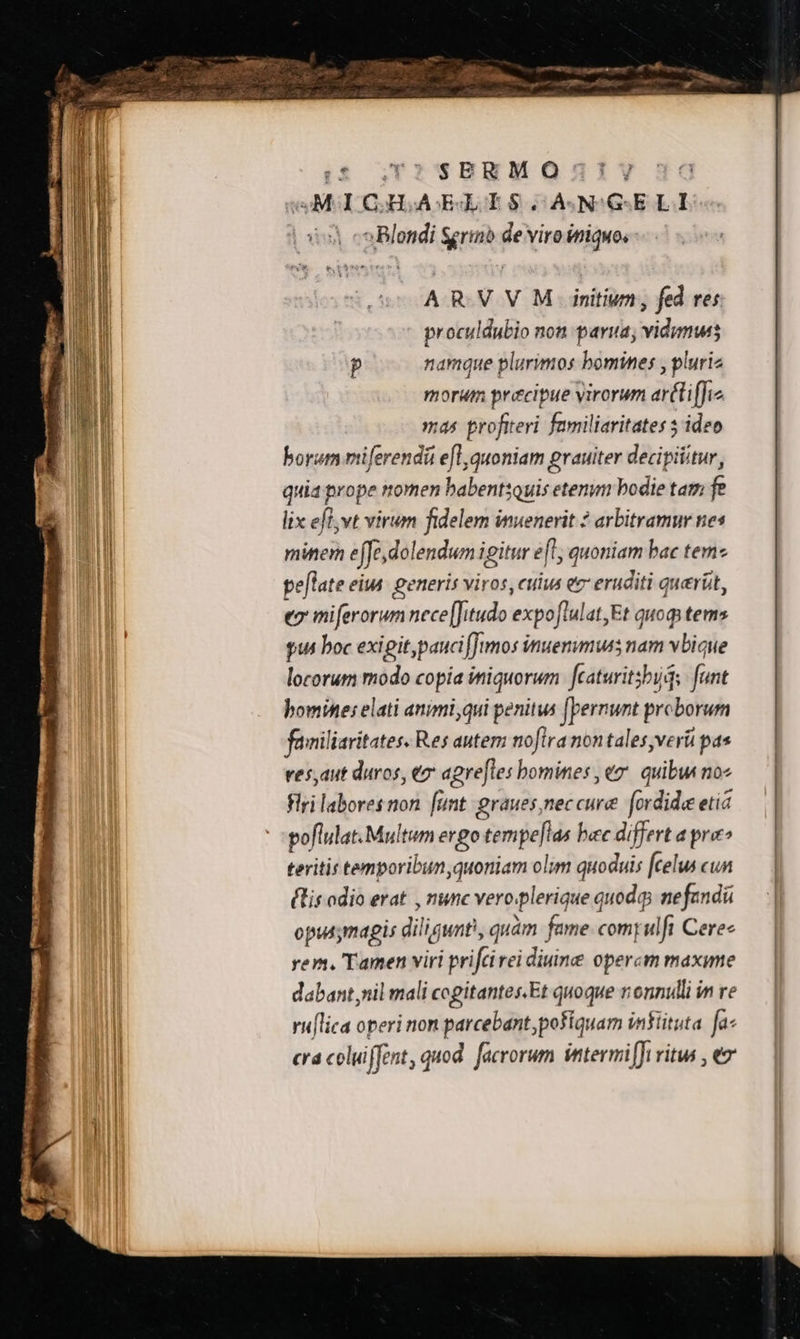 SERMO
MICHAELIS. ANGELI
Blondi Sermo de viro iniquo.
ARVVM initium, sed res
proculdubio non parua, vidimus;
p namque plurimos homines, pluri-
morum præcipue virorum arctissi-
mas profiteri familiaritates; ideo
horum miserendũ est, quoniam grauiter decipiũtur,
quia prope nomen habent; quis etenim hodie tam fe
lix est, vt virum fidelem inuenerit? arbitramur ne-
minem esse, dolendum igitur est, quoniam hac tem-
pestate eius generis viros, cuius & eruditi quærũt,
& miserorum necessitudo expostulat, Et quoq; tem-
pus hoc exigit, paucissimos inuenimus; nam vbique
locorum modo copia iniquorum scaturit; hijq; sunt
homines elati animi, qui penitus spernunt proborum
familiaritates. Res autem nostra non tales, verũ pa-
res, aut duros, & agrestes homines, & quibus no-
stri labores non sunt graues, nec curæ sordidæ etiã
postulat. Multum ergo tempestas hæc differt a præ-
teritis temporibus, quoniam olim quoduis scelus cun
ctis odio erat, nunc vero plerique quodq; nefandũ
opus, magis diligunt, quàm fame compulsi Cere-
rem. Tamen viri prisci rei diuinæ operam maxime
dabant, nil mali cogitantes. Et quoque nonnulli in re
rustica operi non parcebant, postquam instituta sa-
cra coluissent, quod sacrorum intermissi ritus, &